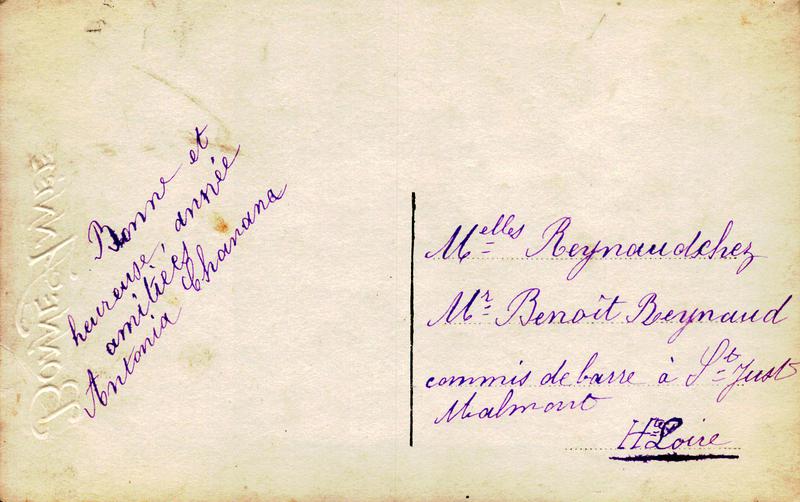 BONNE ANNÉE
Bonne et
heureuse année
amitiées
Antonia Chanana
Melles Reynaudchez
Mr Benoît Reynaud
commis de barre à St Just
Malmont
Hte Loire